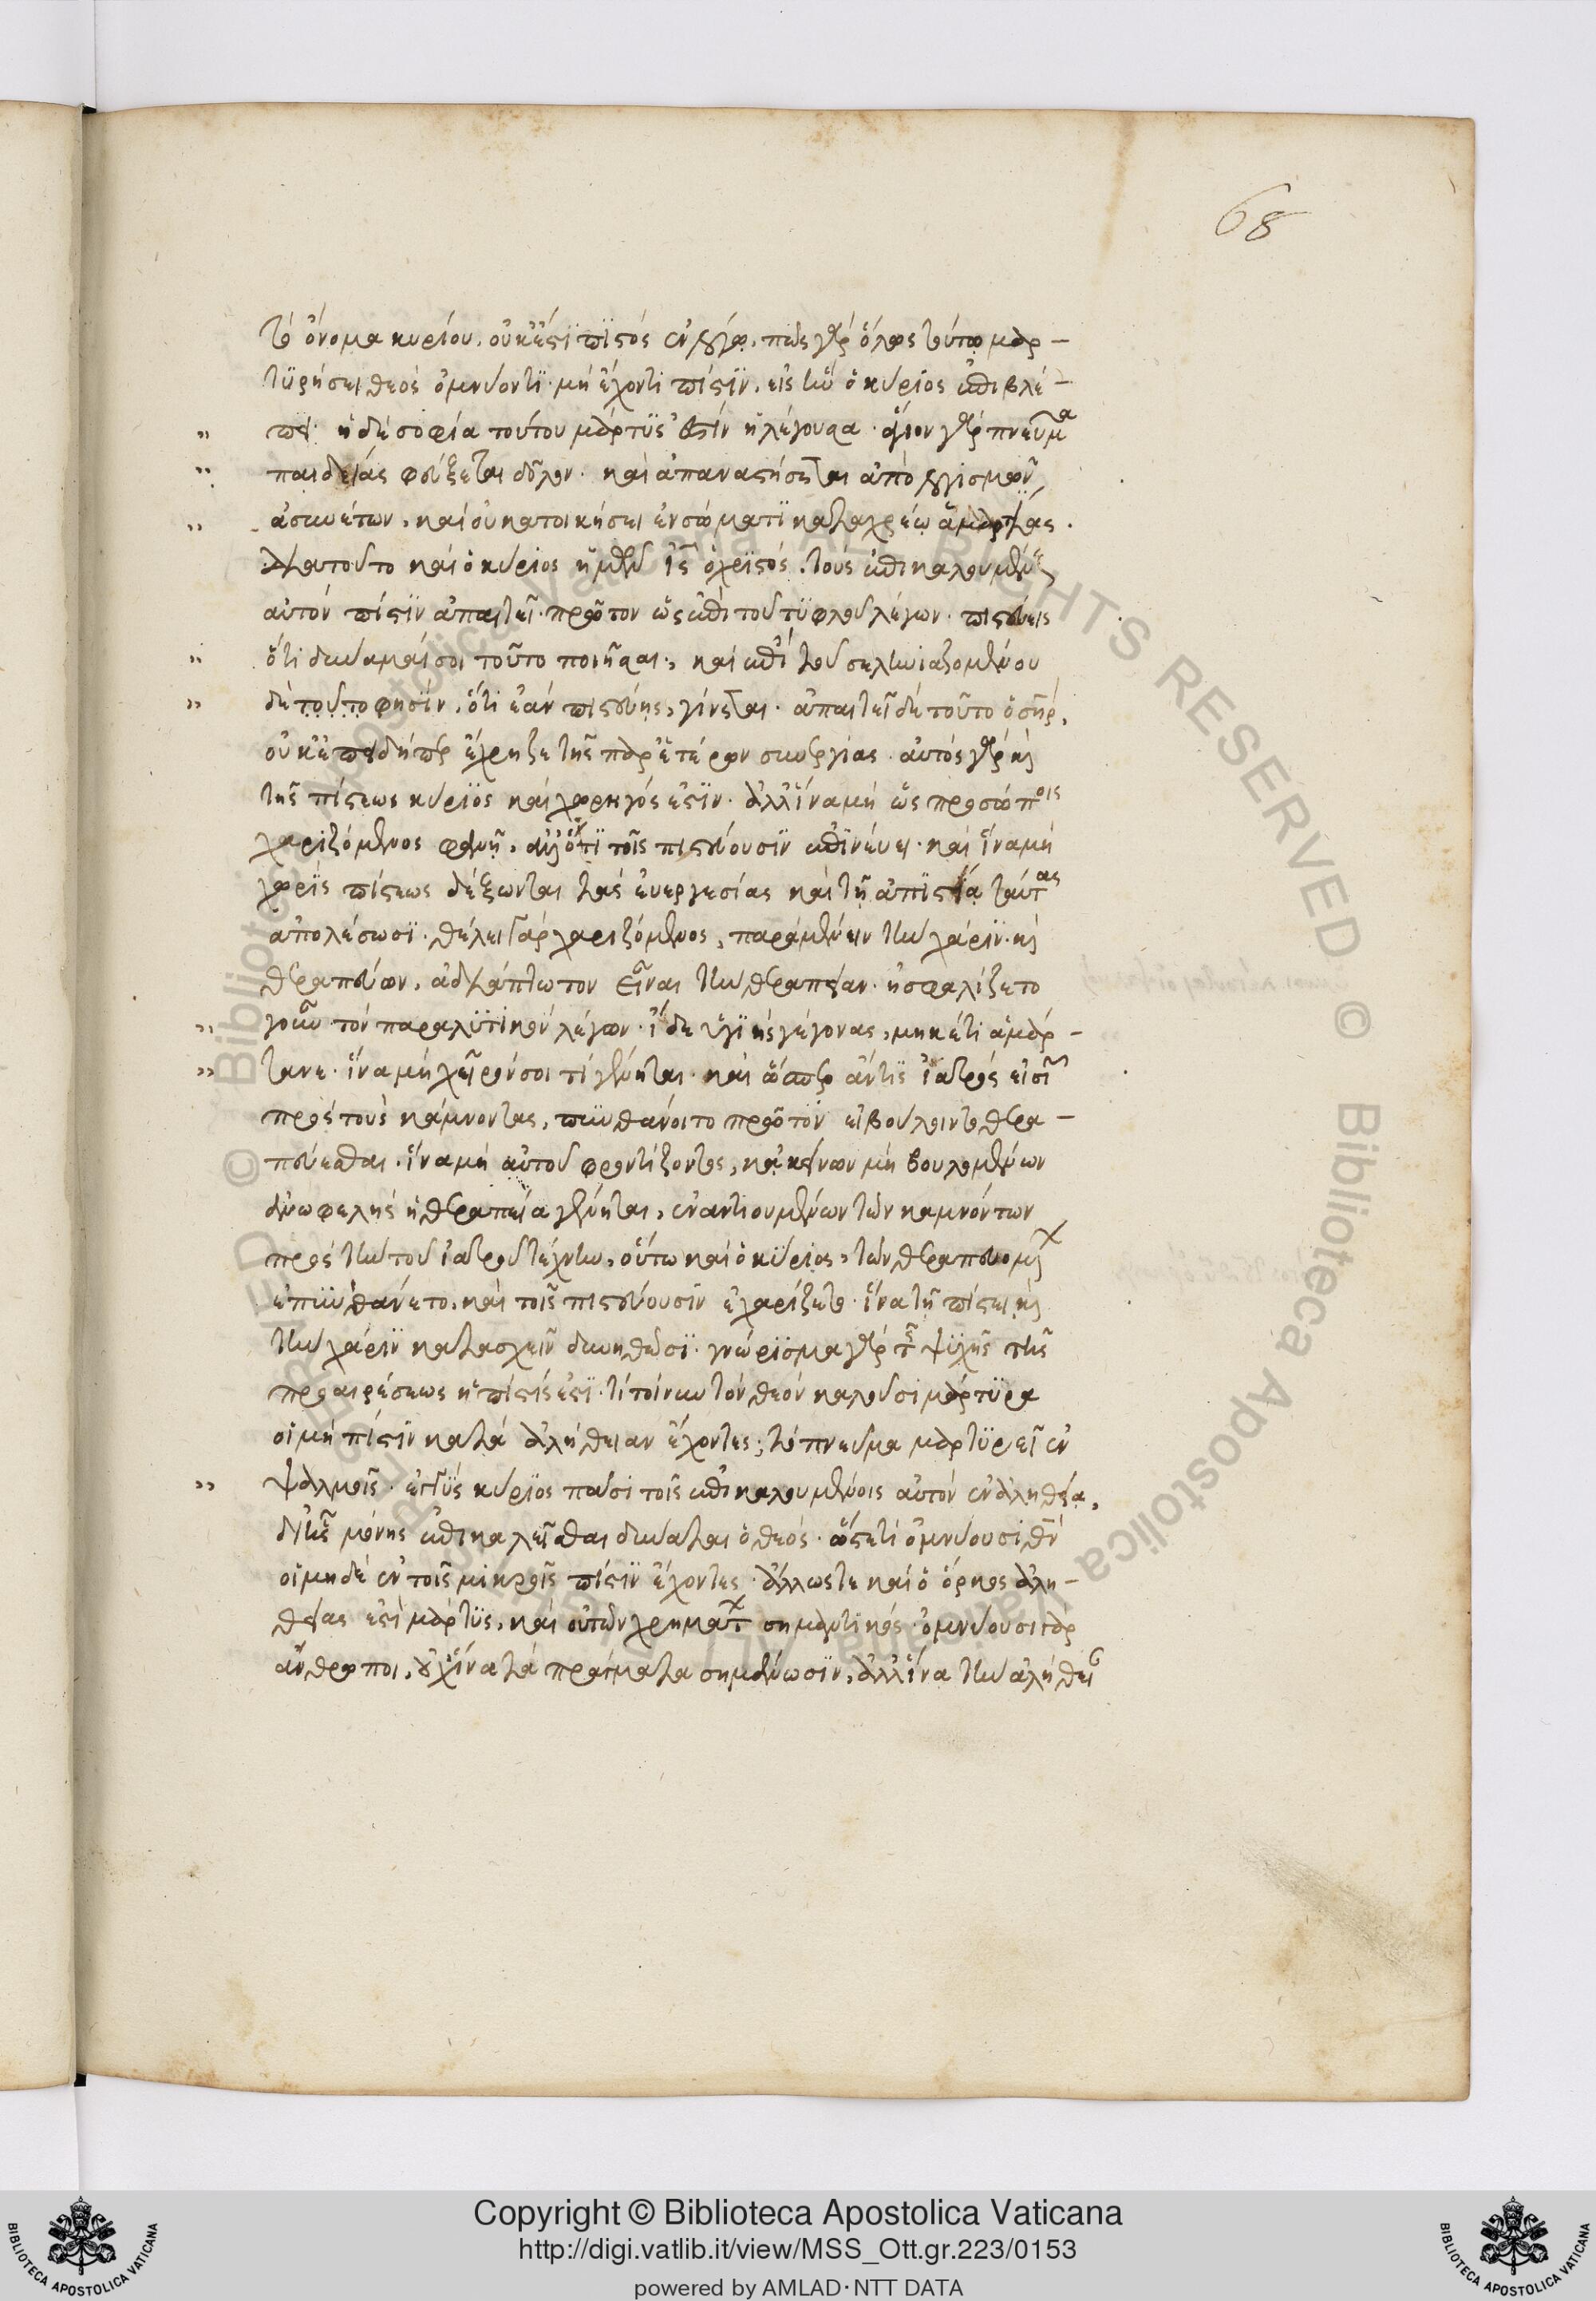 68
τὸ ὄνομα κυρίου. οὐκ ἔστι πιστὸς ἐν λόγῳ. πῶς γὰρ ὅλως τούτῳ μαρ-
τυρήσει θεὸς ὀμνύοντι μὴ ἔχοντι πίστιν. εἰς ἣν ὁ κύριος ἐπιβλέ-
πει. ἡ δὲ σοφία τούτου μάρτυς ἐστὶν ἡ λέγουσα. ἅγιον γὰρ πνεῦμα
παιδείας φεύξεται δόλον. καὶ ἀπαναστήσεται ἀπὸ λογισμῶν
ἀσυνέτων. καὶ οὐ κατοικήσει ἐν σώματι καταχρέῳ ἁμαρτίας.
διατοῦτο καὶ ὁ κύριος ἡμῶν ἰς ὁ χριστός. τοὺς ἐπικαλουμένους
αὐτὸν πίστιν ἀπαιτεῖ. πρῶτον ὡς ἐπὶ τοῦ τυφλοῦ λέγων. πιστεύεις
ὅτι δύναμαί σοι τοῦτο ποιῆσαι. καὶ ἐπὶ τοῦ σεληνιαζομένου
δὲ τοῦτο φησίν. ὅτι ἐὰν πιστεύῃς, γίνεται. ἀπαιτεῖ δὲ τοῦτο ὁ σὴρ,
οὐκ ἐπειδήπερ ἔχρηζε τῆς παρ' ἑτέρων συνεργίας. αὐτὸς γὰρ καὶ
τῆς πίστεως κύριος καὶ χορηγός ἐστιν. ἀλλ' ἵνα μὴ ὡς προσώποις
χαριζόμενος φανῇ. ἀλλ' ὅτι τοῖς πιστεύουσιν ἐπινεύει. καὶ ἵνα μὴ
χωρὶς πίστεως δέξωνται τὰς εὐεργεσίας καὶ τῇ ἀπιστίᾳ ταύτας
ἀπολέσωσι. θέλει γὰρ χαριζόμενος, παραμένειν τὴν χάριν. καὶ
θεραπεύων. ἀδιάπτωτον εἶναι τὴν θεραπείαν. ἠσφαλίζετο
γοῦν τὸν παραλυτικὸν λέγων. ἴδε ὑγιὴς γέγονας, μηκέτι ἁμάρ-
τανε. ἵνα μὴ χεῖρόν σοι τὶ γένηται. καὶ ὥσπερ ἄν τις ἰατρὸς εἰσιὼν
πρὸς τοὺς κάμνοντας, πυνθάνοιτο πρῶτον εἰ βούλοιντο θερα-
πεύεσθαι. ἵνα μὴ αὐτοῦ φροντίζοντος, κἀκείνων μὴ βουλομένων
ἀνωφελὴς ἡ θεραπεία γένηται, ἐναντιουμένων τῶν καμνόντων
πρὸς τὴν τοῦ ἰατροῦ τέχνην. οὕτω καὶ ὁ κύριος, τῶν θεραπευομένων
ἐπυνθάνετο. καὶ τοῖς πιστεύουσιν ἐχαρίζετο. ἵνα τῇ πίστει καὶ
τὴν χάριν κατασχεῖν δυνηθῶσι. γνώρισμα γὰρ τῆς ψυχῆς τῆς
προαιρέσεως ἡ πίστις ἐστί. τί τοίνυν τὸν θεὸν καλοῦσι μάρτυρα
οἱ μὴ πίστιν κατὰ ἀλήθειαν ἔχοντες; τὸ πνεῦμα μαρτυρεῖ ἐν
ψαλμοῖς. ἐγγὺς κύριος πᾶσι τοῖς ἐπικαλουμένοις αὐτὸν ἐν ἀληθείᾳ.
δι' ἧς μόνης ἐπικαλεῖσθαι δύναται ὁ θεός. ὥστε τί ὀμνύουσι θν
οἱ μηδὲ ἐν τοῖς μικροῖς πίστιν ἔχοντες. ἄλλως τε καὶ ὁ ὅρκος ἀλη-
θείας ἐστὶ μάρτυς, καὶ οὐ τῶν χρημάτων σημαντικός. ὀμνύουσι γὰρ
ἄνθρωποι, οὐχ ἵνα τὰ πράγματα σημάνωσιν, ἀλλ' ἵνα τὴν ἀλήθειαν
Copyright © Biblioteca Apostolica Vaticana
http://digi.vatlib.it/view/MSS_Ott.gr.223/0153
powered by AMLAD·NTT DATA
BIBLIOTECA APOSTOLICA VATICANA
BIBLIOTECA APOSTOLICA VATICANA